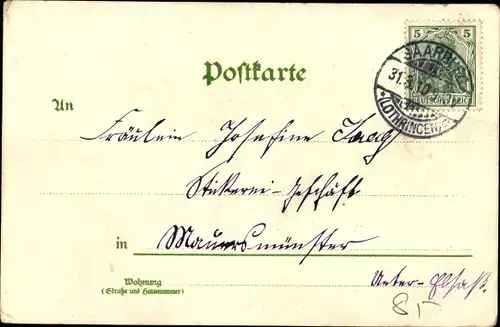 5 5
SAARBURG
31.3.10
DEUTSCHES REICH
*(LOTHRINGEN)*
Postkarte
An
Fräulein Josefine Jaag
Stickerei-Geschäft
in Mauersmünster
Wohnung
(Straße und Hausnummer)
Unter-Elsaß.
8,-